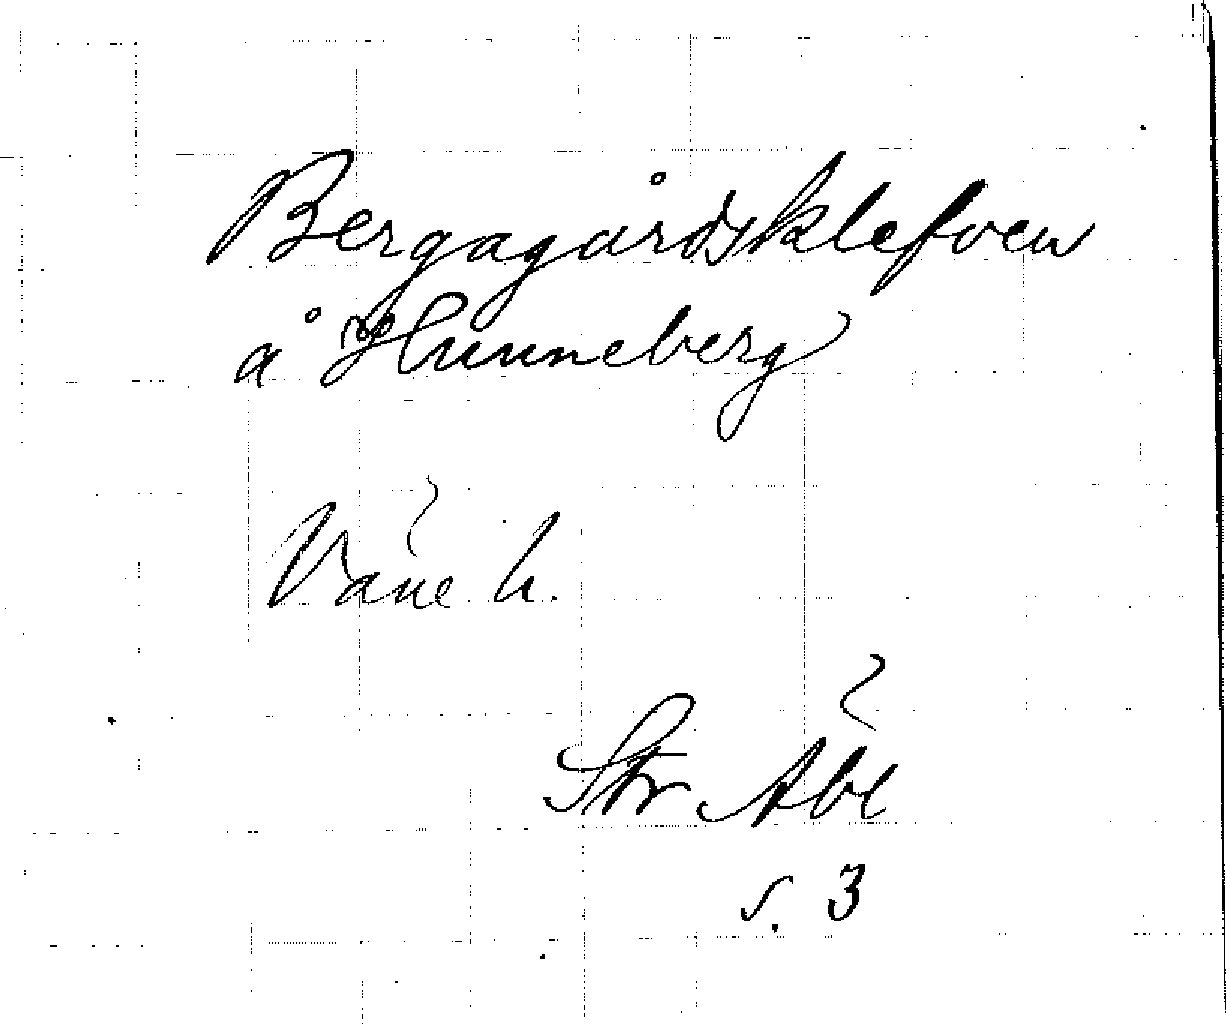 Bergagårdsklefven
å Hunneberg
Väne h.
Str Åbe
s. 3